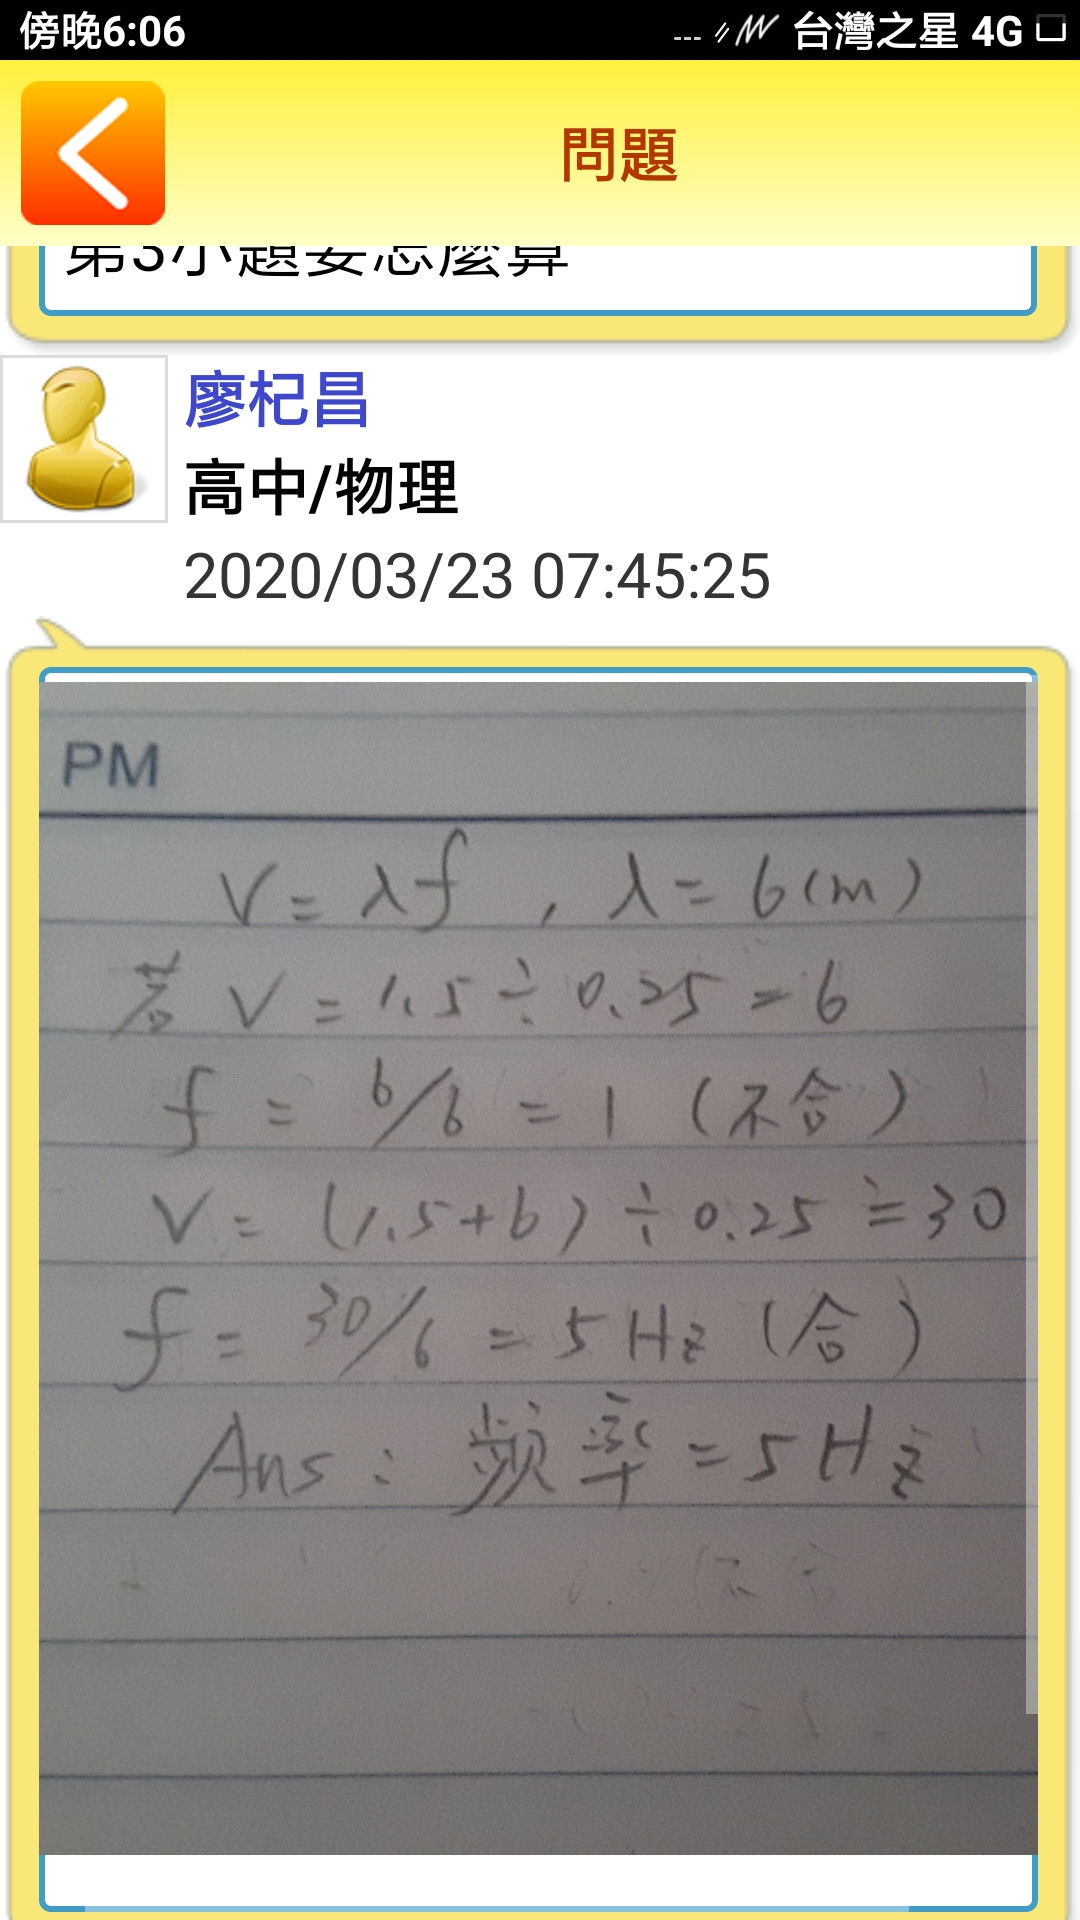 傍晚6:06
台灣之星 4G
問題
第3小題要怎麼算
廖杞昌
高中/物理
2020/03/23 07:45:25
PM
V = λf , λ = 6(m)
若 V = 1.5 ÷ 0.25 = 6
f = 6/6 = 1 (不合)
V = (1.5+6) ÷ 0.25 = 30
f = 30/6 = 5 Hz (合)
Ans : 頻率 = 5 Hz